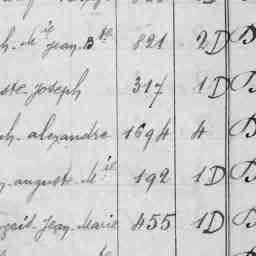 h. M ie jean-B te 821 2D B
ste Joseph 317 1D B
h. alexandre 1694 4 B
auguste. M ie 192 1D B
Jean Marie 455 1D B